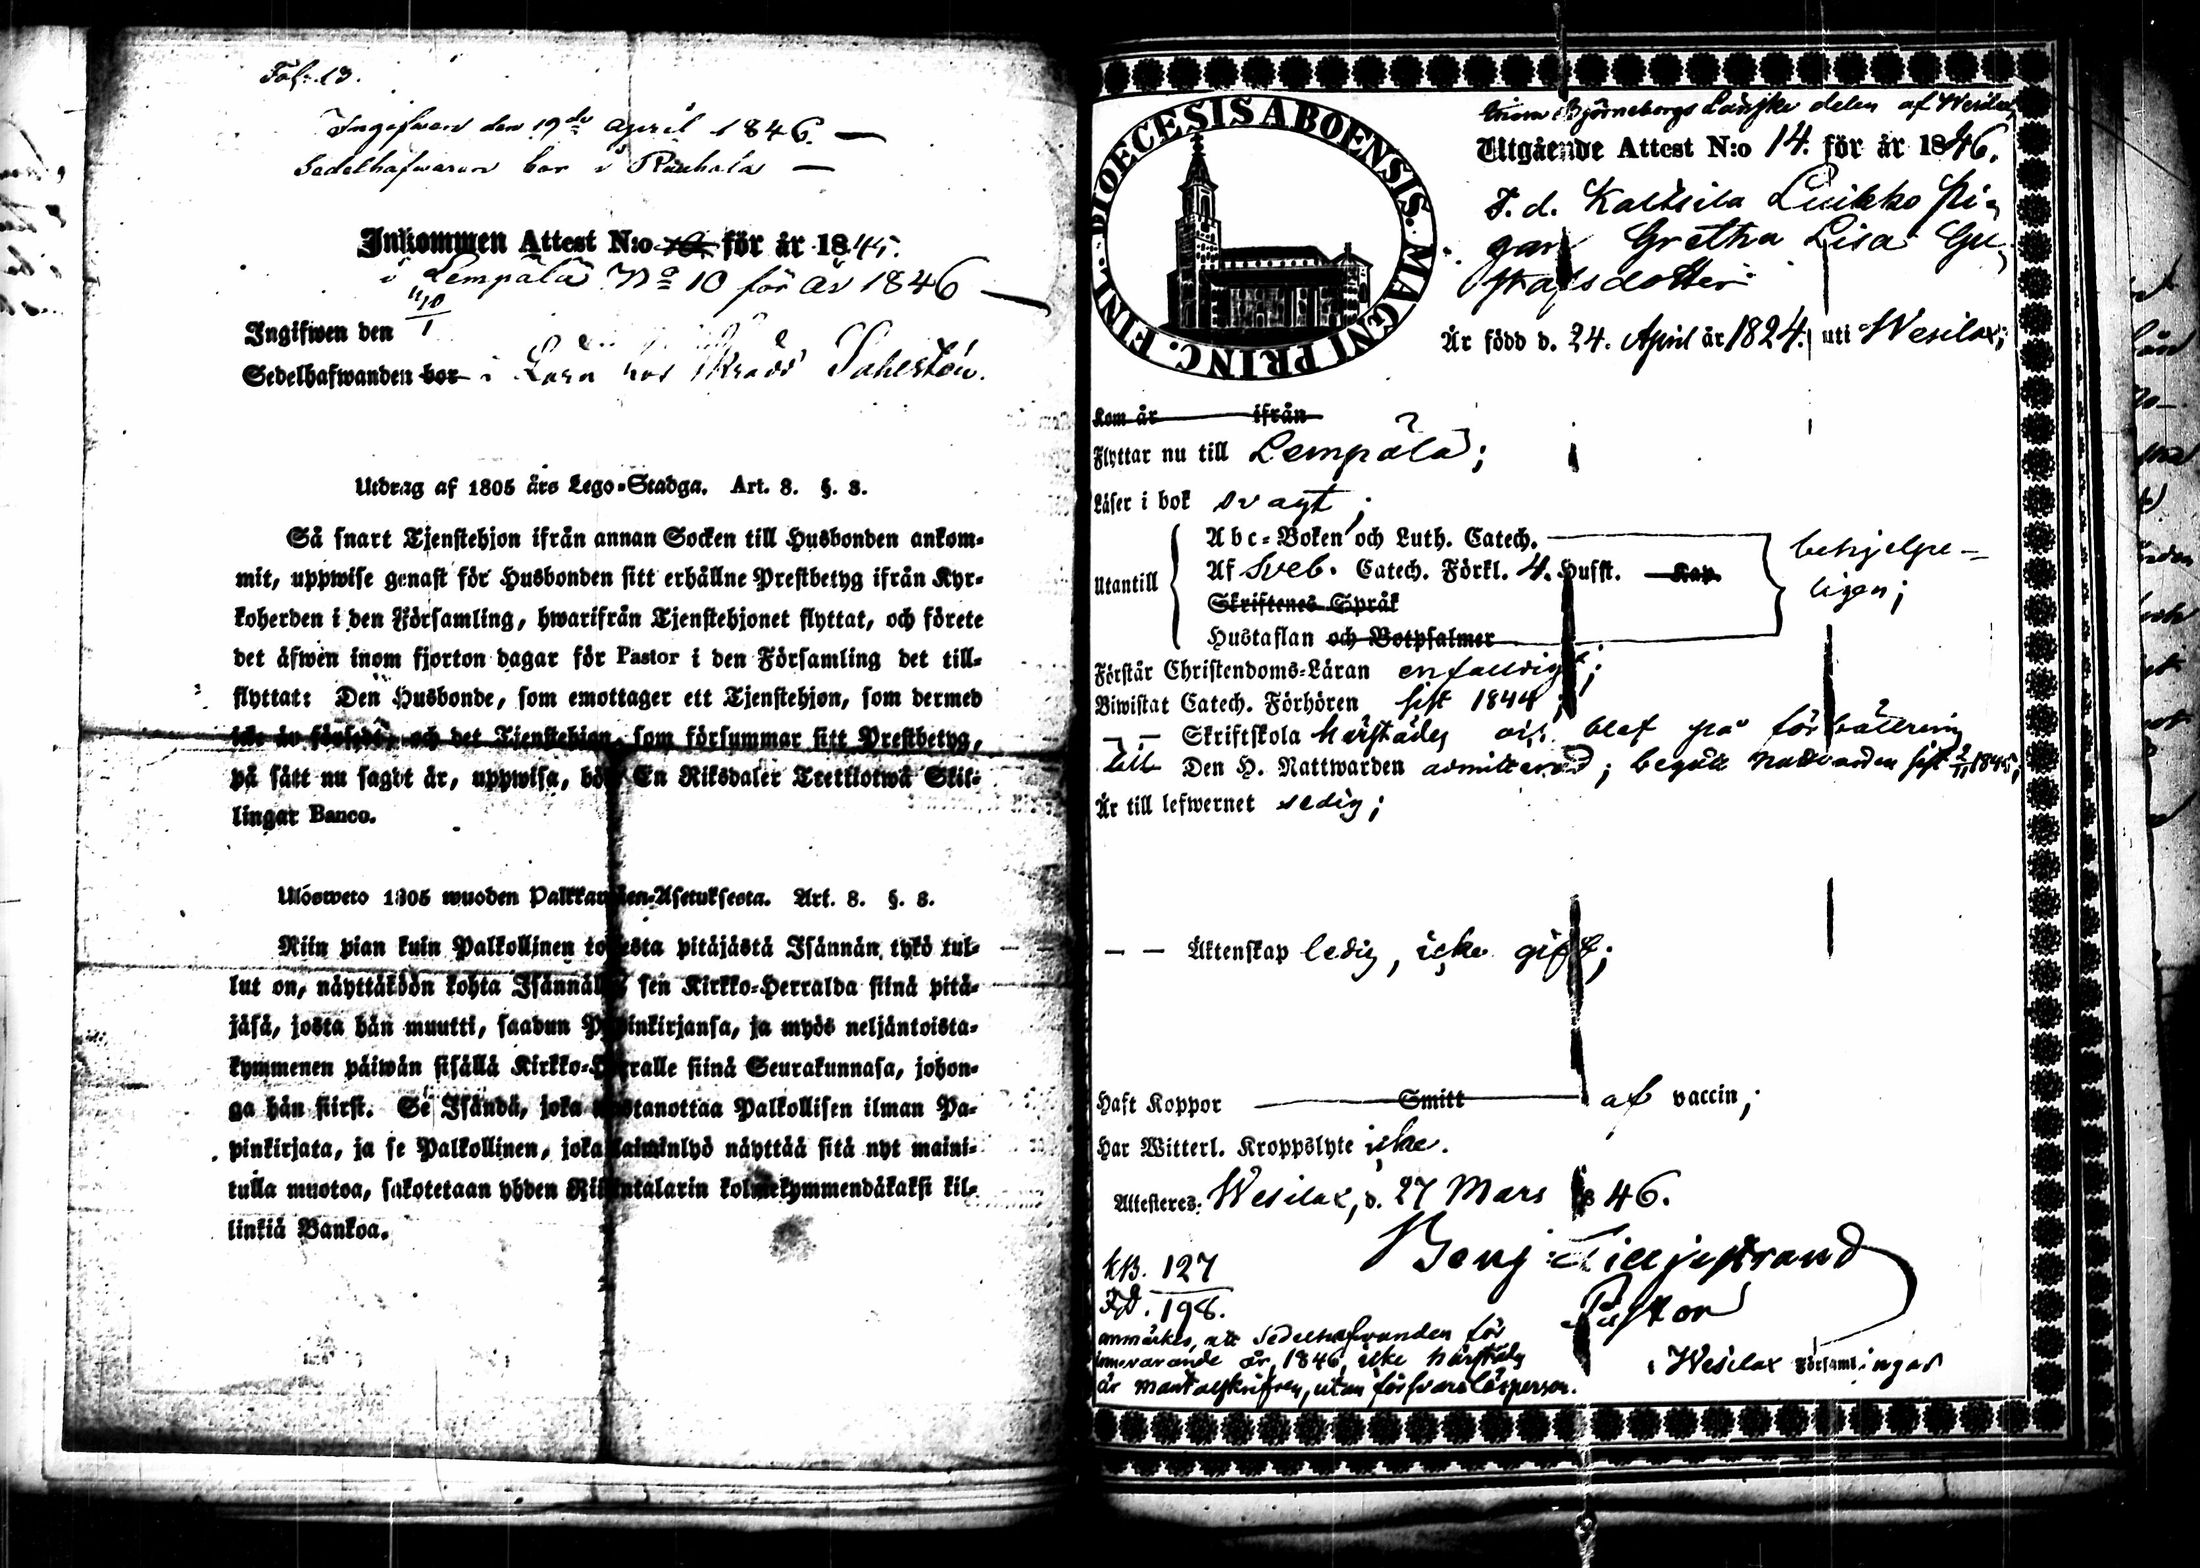 Fol. 13.
Ingifwen den 19de April 1846. —
Sedelhafwaren bor i Rauhala —
Inkommen Attest N:o för år 1845.
i Lempälä No 10 för år 1846 —
Ingifwen den
Sedelhafwanden bor i hos
Utdrag af 1805 års Lego-Stadga. Art. 8. §. 8.
Så snart Tjenstehjon ifrån annan Socken till Husbonden ankom-
mit, uppwise genast för Husbonden sitt erhållne Prestbetyg ifrån Kyr-
koherden i den Församling, hwarifrån Tjenstehjonet flyttat, och förete
det äfwen inom fjorton dagar för Pastor i den Församling det till-
flyttat: Den Husbonde, som emottager ett Tjenstehjon, som dermed
icke är försedt, och det Tjenstehjon, som försummar sitt Prestbetyg,
på sätt nu sagdt är, uppwisa, böte En Riksdaler Trettiotwå Skil-
lingar Banco.
Ulösweto 1805 wuoden Palkkawäen-Asetuksesta. Art. 8. §. 8.
Niin pian kuin Palkollinen toisesta pitäjästä Isännän tykö tul-
lut on, näyttäköön kohta Isännällen sen Kirkko-Herralda siinä pitä-
jäsä, josta hän muutti, saadun Papinkirjansa, ja myös neljäntoista-
kymmenen päiwän sisällä Kirkko-Herralle siinä Seurakunnasa, johon-
ga hän siirsi. Se Isändä, joka wastanottaa Palkollisen ilman Pa-
pinkirjata, ja se Palkollinen, joka laiminlyö näyttää sitä nyt maini-
tulla muotoa, sakotetaan yhden Riksintalarin kolmekymmendäkaksi kil-
linkiä Bankoa.
DIOECESIS ABOENSIS. MAGNI PRINC. FINL.
Björneborgs Länske delen af Wesilax
Utgående Attest N:o 14. för år 1846.
F. d. Kaltsila Luikko Pi-
gan Gretha Lisa Gu-
stafsdotter
Är född d. 24. April år 1824. uti Wesilax;
Kom år ifrån
Flyttar nu till Lempälä;
Läser i bok svagt;
Utantill
Abc-Boken och Luth. Catech.
Af Sveb. Catech. Förkl. 4. Hufst. Kap.
Skriftenes Språk
Hustaflan och Botpsalmer
behjelpe-
ligen;
Förstår Christendoms-Läran enfaldigt;
Biwistat Catech. Förhören sist 1844;
— — Skriftskola härstädes och blef på förbättering
till Den H. Nattwarden admitterad; begått nattvarden sist 1845;
Är till lefwernet sedig;
— — Äktenskap ledig, icke gift;
Haft Koppor Smitt af vaccin;
Har Witterl. Kroppslyte icke.
Attesteres. Wesilax, d. 27 Mars 1846.
Benj. Lilljestrand
Pastor
i Wesilax Församlingar
KB. 127
198.
anmärkes, att Sedelhafvanden för
innevarande år, 1846, icke härstädes
är mantalskrifven, utan försvarslösperson.